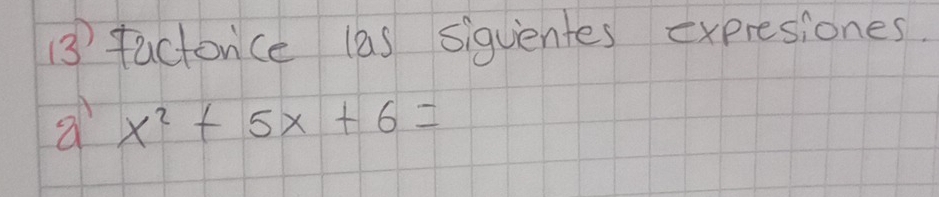 13) factorice las siguientes expresiones.
a) x² + 5x + 6 =